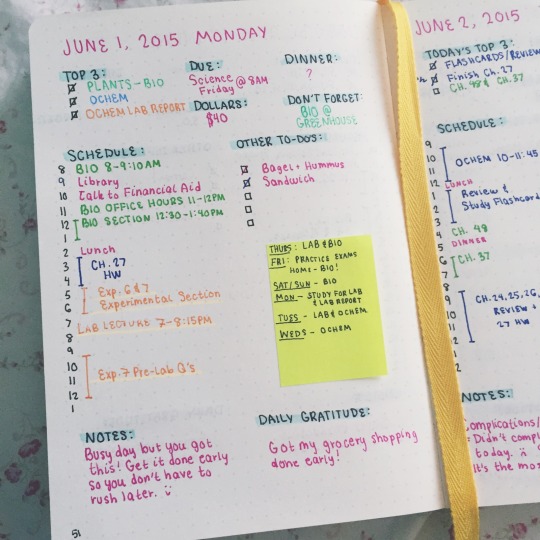 JUNE 1, 2015 MONDAY
TOP 3:
PLANTS - BIO
OCHEM
OCHEM LAB REPORT
DUE:
Science
Friday @ 8AM
DOLLARS:
$40
DINNER:
?
DON'T FORGET:
BIO @
GREENHOUSE
SCHEDULE:
8 BIO 8-9:10AM
9 Library
10 talk to Financial Aid
11 BIO OFFICE HOURS 11-12PM
12 BIO SECTION 12:30-1:40PM
1
2 Lunch
3 CH. 27
4 HW
5 Exp. 6 & 7
6 Experimental Section
7 LAB LECTURE 7-8:15PM
8
9
10
11 Exp. 7 Pre-Lab Q's
12
1
OTHER TO-DOS:
Bagel + Hummus
Sandwich
THURS: LAB & BIO
FRI: PRACTICE EXAMS
HOME - BIO!
SAT/SUN - BIO
MON - STUDY FOR LAB
& LAB REPORT
TUES - LAB & OCHEM
WEDS - OCHEM
NOTES:
Busy day but you got
this! Get it done early
so you don't have to
rush later.
DAILY GRATITUDE:
Got my grocery shopping
done early!
51
JUNE 2, 2015
TODAY'S TOP 3:
FLASHCARDS/REVIEW
Finish Ch. 27
CH. 48 & CH. 37
SCHEDULE:
9
10 OCHEM 10-11:45
11
12 LUNCH
1 Review &
2 Study Flashcard
3
4 CH. 48
5 DINNER
6 CH. 37
7
8
9 CH. 24, 25, 26,
10 REVIEW +
11 27 HW
12
NOTES:
Complications/
Didn't compl
today.
It's the mo